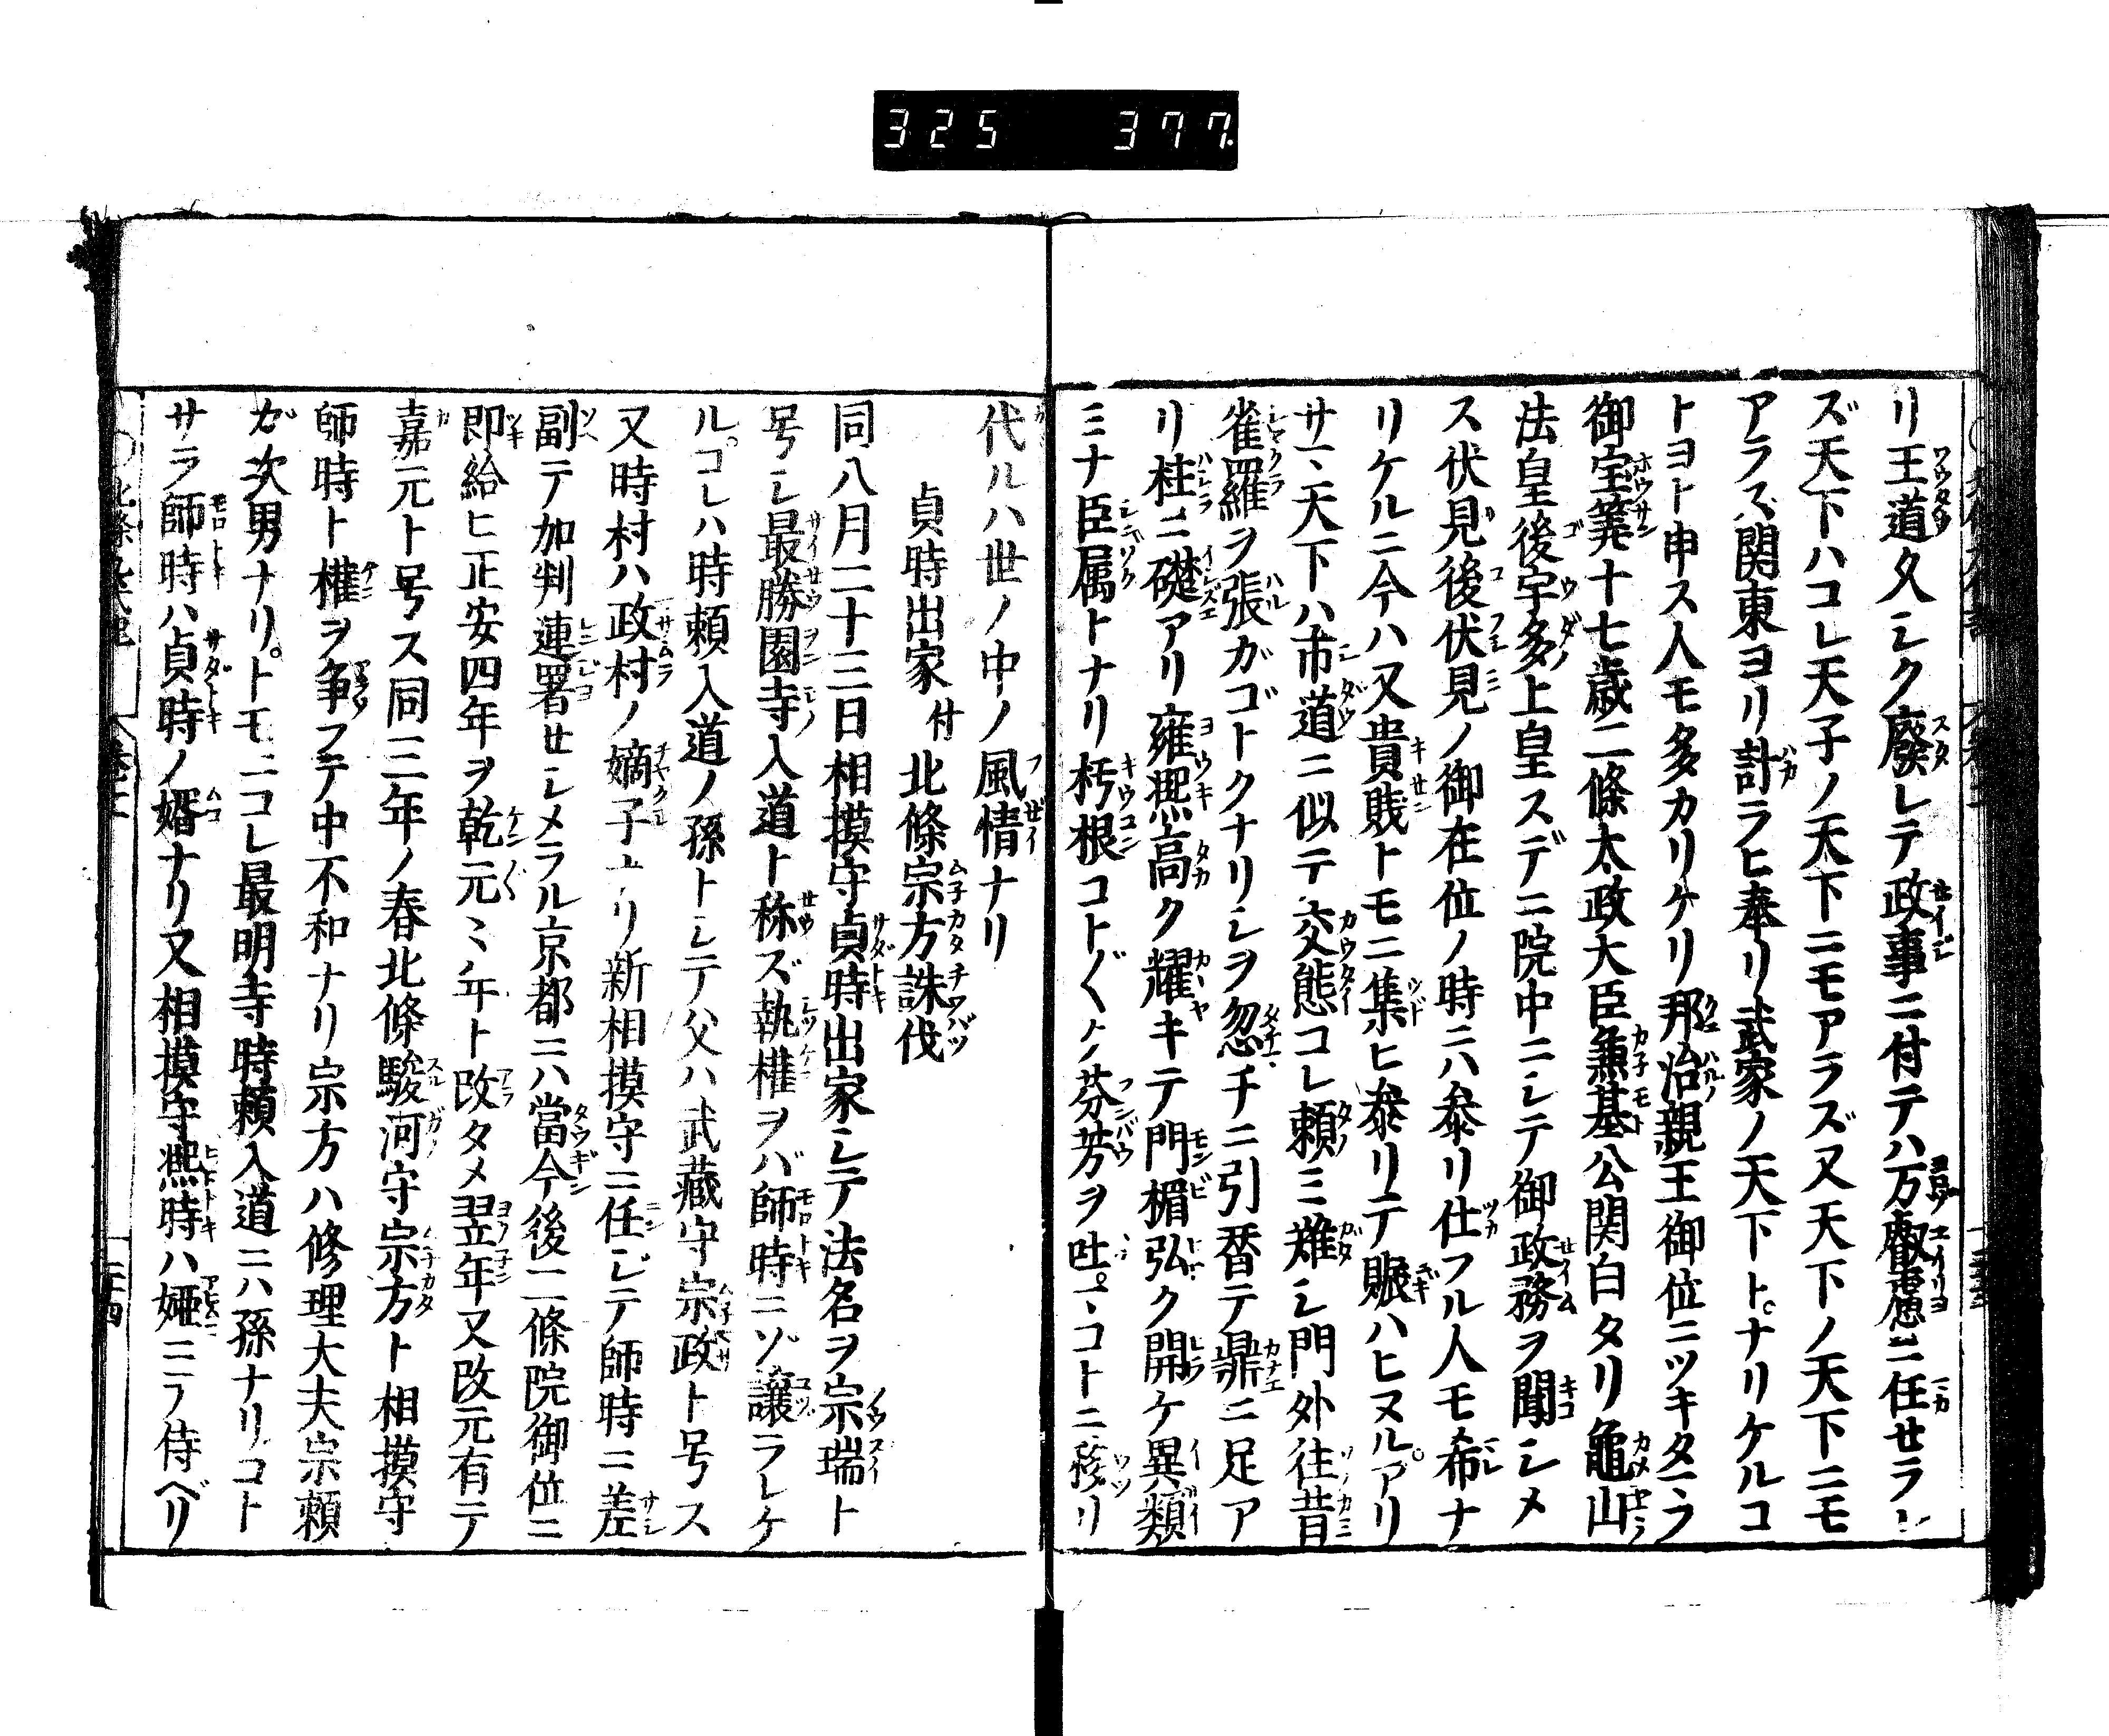 325 377.
リ王道久シク廢レテ政事ニ付テハ万叡慮ニ任セラレ
ズ天下ハコレ天子ノ天下ニモアラズ又天下ノ天下ニモ
アラズ関東ヨリ計ラヒ奉リ武家ノ天下トナリケルコ
トヨト申ス人モ多カリケリ邦治親王御位ニツキタマフ
御宝筭十七歳二條太政大臣兼基公関白タリ龜山
法皇後宇多上皇スデニ院中ニシテ御政務ヲ聞シメ
ス伏見後伏見ノ御在位ノ時ニハ参リ仕フル人モ希ナ
リケルニ今ハ又貴賎トモニ集ヒ参リテ賑ハヒヌルアリ
サマ天下ハ市道ニ似テ交態コレ頼ミ難シ門外往昔
雀羅ヲ張ガゴトクナリシヲ忽チニ引替テ鼎ニ足ア
リ柱ニ礎アリ雍熈高ク耀キテ門楣弘ク開ケ異類
ミナ臣属トナリ朽根コト〴〵ク芬芳ヲ吐コトニ移リ
代ルハ世ノ中ノ風情ナリ
貞時出家 付 北條宗方誅伐
同八月二十三日相摸守貞時出家シテ法名ヲ宗瑞ト
号シ最勝園寺入道ト称ズ執権ヲバ師時ニゾ讓ラレケ
ルコレハ時頼入道ノ孫トシテ父ハ武藏守宗政ト号ス
又時村ハ政村ノ嫡子ナリ新相摸守ニ任ジテ師時ニ差
副テ加判連署セシメラル京都ニハ當今後二條院御位ニ
即給ヒ正安四年ヲ乾元〻年ト改タメ翌年又改元有テ
嘉元ト号ス同三年ノ春北條駿河守宗方ト相摸守
師時ト権ヲ争フテ中不和ナリ宗方ハ修理大夫宗頼
ガ次男ナリトモニコレ最明寺時頼入道ニハ孫ナリコト
サラ師時ハ貞時ノ婿ナリ又相摸守熈時ハ婭ニテ侍ベリ